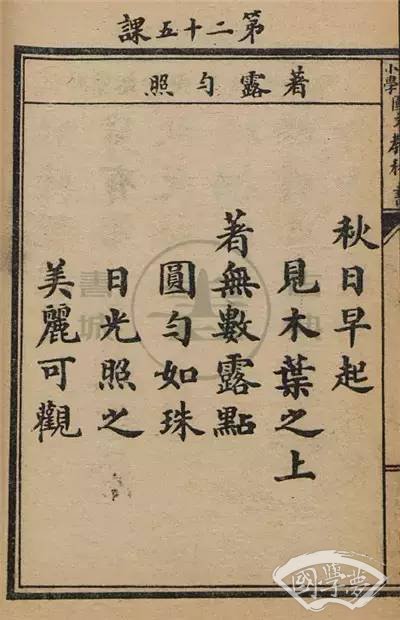 第二十五課
著露勻照
秋日早起
見木葉之上
著無數露點
圓勻如珠
日光照之
美麗可觀
國學夢